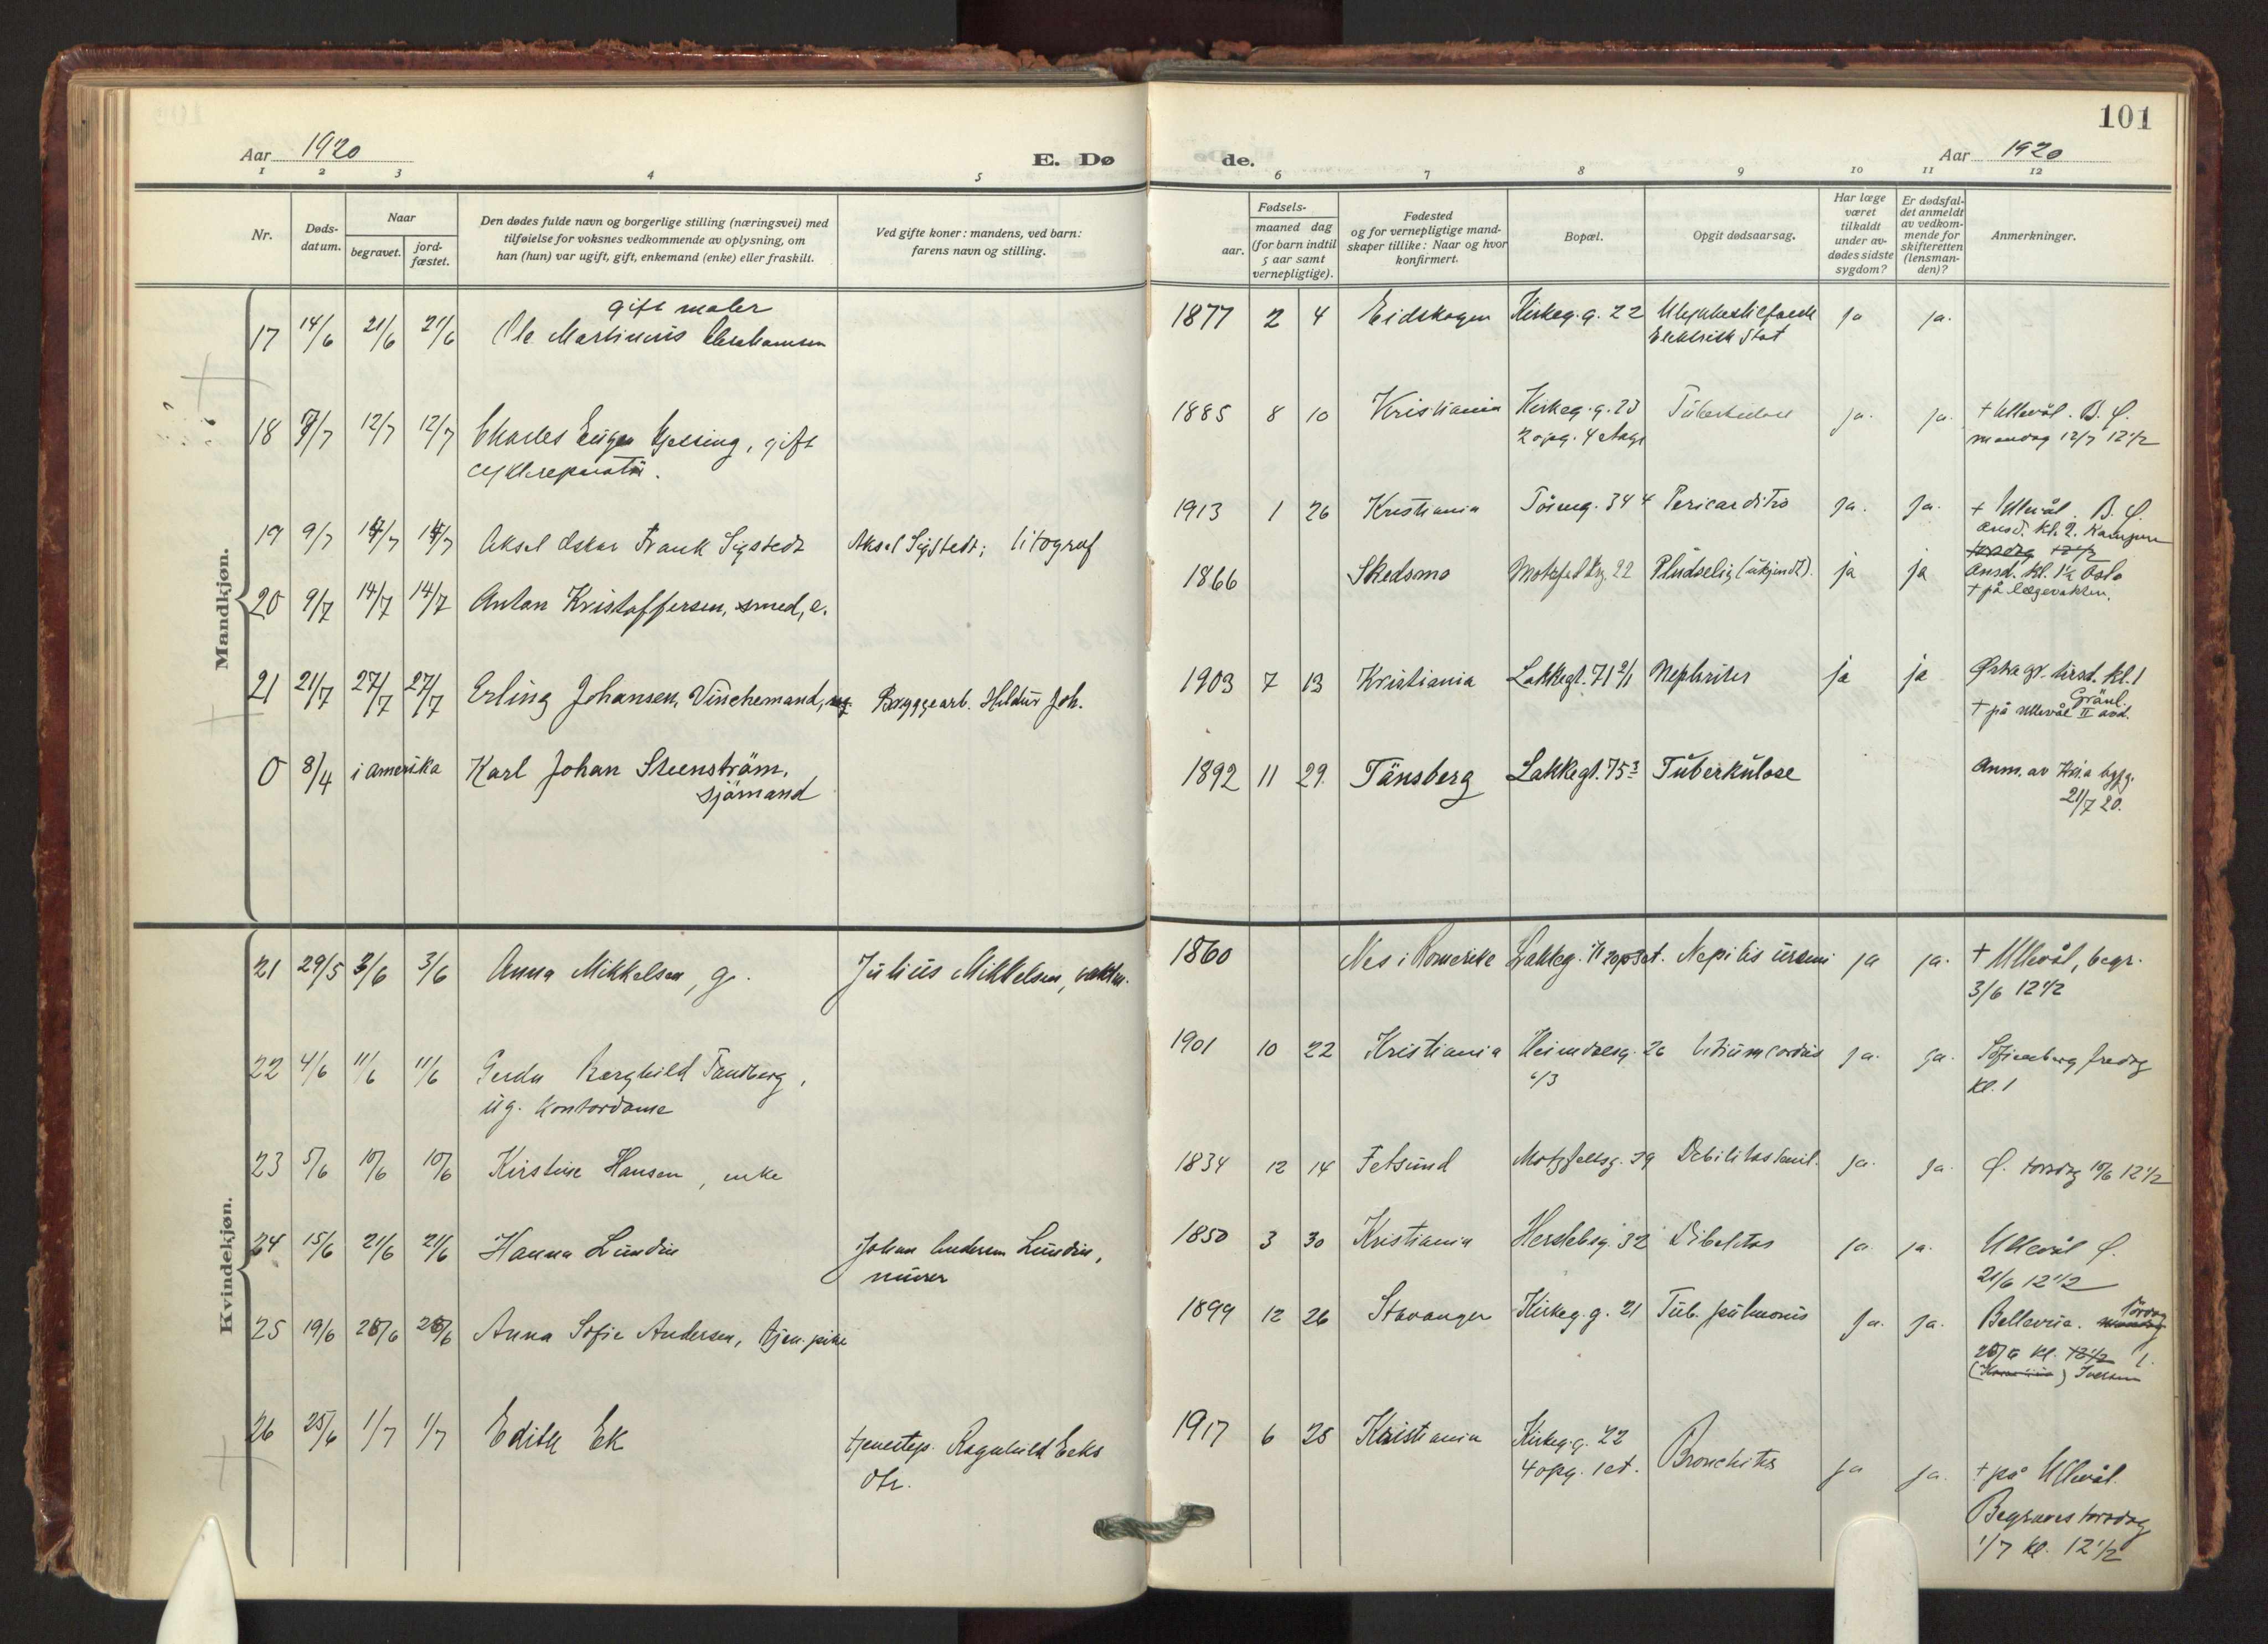 101
Aar 1920
E. Dø
de.
Aar 1920
1 2 3 4 5 6 7 8 9 10 11 12
Nr.
Døds-
datum.
Naar
begravet.
jord-
fæstet.
Den dødes fulde navn og borgerlige stilling (næringsvei) med
tilføielse for voksnes vedkommende av oplysning, om
han (hun) var ugift, gift, enkemand (enke) eller fraskilt.
Ved gifte koner: mandens, ved barn:
farens navn og stilling.
Fødsels-
aar.
maaned dag
(for barn indtil
5 aar samt
vernepligtige).
Fødested
og for vernepligtige mand-
skaper tillike: Naar og hvor
konfirmert.
Bopæl.
Opgit dødsaarsag.
Har læge
været
tilkaldt
under av-
dødes sidste
sygdom?
Er dødsfal-
det anmeldt
av vedkom-
mende for
skifteretten
(lensman-
den)?
Anmerkninger.
Mandkjøn.
gift maler
17 14/6 21/6 21/6 Ole Martinius Abrahamsen 1877 2 4 Eidskogen Kirkeg.g. 22 Ulykkestilfælde ja ja.
Elektrisk Støt
18 7/7 12/7 12/7 Charles Eugen Gjelsing, gift 1885 8 10 Kristiania Kirkeg.g. 23 Tuberkulose ja. ja. + Ullevål. B. Ø.
2 opg. 4 etage mandag 12/7 12 1/2
19 9/7 14/7 14/7 Aksel Oskar Frank Sigstedt Aksel Sigstedt; litograf 1913 1 26 Kristiania Töieng. 34 4 Pericarditis ja. ja. + Ullevål. B. Ø.
onsd. kl. 2. Kampen
torsdag 12 1/2
20 9/7 14/7 14/7 Anton Kristoffersen, smed, e. 1866 Skedsmo Motzfeldtsg. 22 Pludselig (ukjendt). ja ja Onsd. kl. 1 1/2 Oslo
+ på lægevakten.
21 21/7 27/7 27/7 Erling Johansen, Vinchemand, ug Bryggearb. Hildur Joh. 1903 7 13 Kristiania Lakkegt. 71 2/1 Nephrites ja ja Østre gr. tirsd. kl. 1
Grönl.
+ på Ullevål II avd.
0 8/4 i amerika Karl Johan Steenström. 1892 11 29. Tönsberg Lakkegt. 75 3 Tuberkulose Anm. av Kr.a byfg.
sjömand 21/7 20.
Kvindekjøn.
21 29/5 3/6 3/6 Anna Mikkelsen, g. Julius Mikkelsen, vaktm. 1860 Nes i Romerike Lakkeg. ja ja. + Ullevål, begr.
3/6 12 1/2
22 4/6 11/6 11/6 Gerda Borghild Tandberg, 1901 10 22 Kristiania Heimdalsg. 26 Vitium cordis ja. ja. Sofienberg fredag
ug. kontordame 6/3 kl. 1
23 5/6 10/6 10/6 Kirstine Hansen, enke 1834 12 14 Fetsund Motzfeltsg. 29 Debilitas senil. ja. ja. Ø. torsdag 10/6 12 1/2
24 15/6 21/6 21/6 Hanna Lundin Johan Anderson Lundin, 1850 3 30 Kristiania Herslebsg. 32 Dibelitas ja ja. Ullevål Ø.
murer 21/6 12 1/2
25 19/6 26/6 26/6 Anna Sofie Andersen, tjen. pike 1899 12 26 Stavanger Kirkeg.g. 21 Tub. pulmonis ja. ja. Bellevue. mandag lördag
26/6 kl. 12 1/2 1.
Iversen
26 25/6 1/7 1/7 Edith Ek tjenestep. Ragnhild Eeks 1917 6 28 Kristiania Kirkeg.g. 22 Bronchitis ja ja. + på Ullevål.
dtr. 4 opg. 1 et.
Begraves torsdag
1/7 kl. 12 1/2